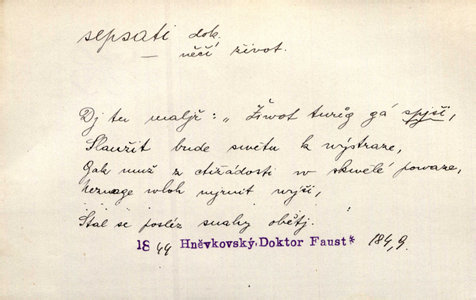 sepsati dok.
něčí život.
Dj ten maljř: „Život twůg gá spjši,
Slaužit bude swětu k výstraze,
Gak muž z ctižádosti w skwělé powaze,
nemage wloh wyššj,
Stal se posléz snahy obětj.
1849 Hněvkovský, Doktor Faust* 184,9.